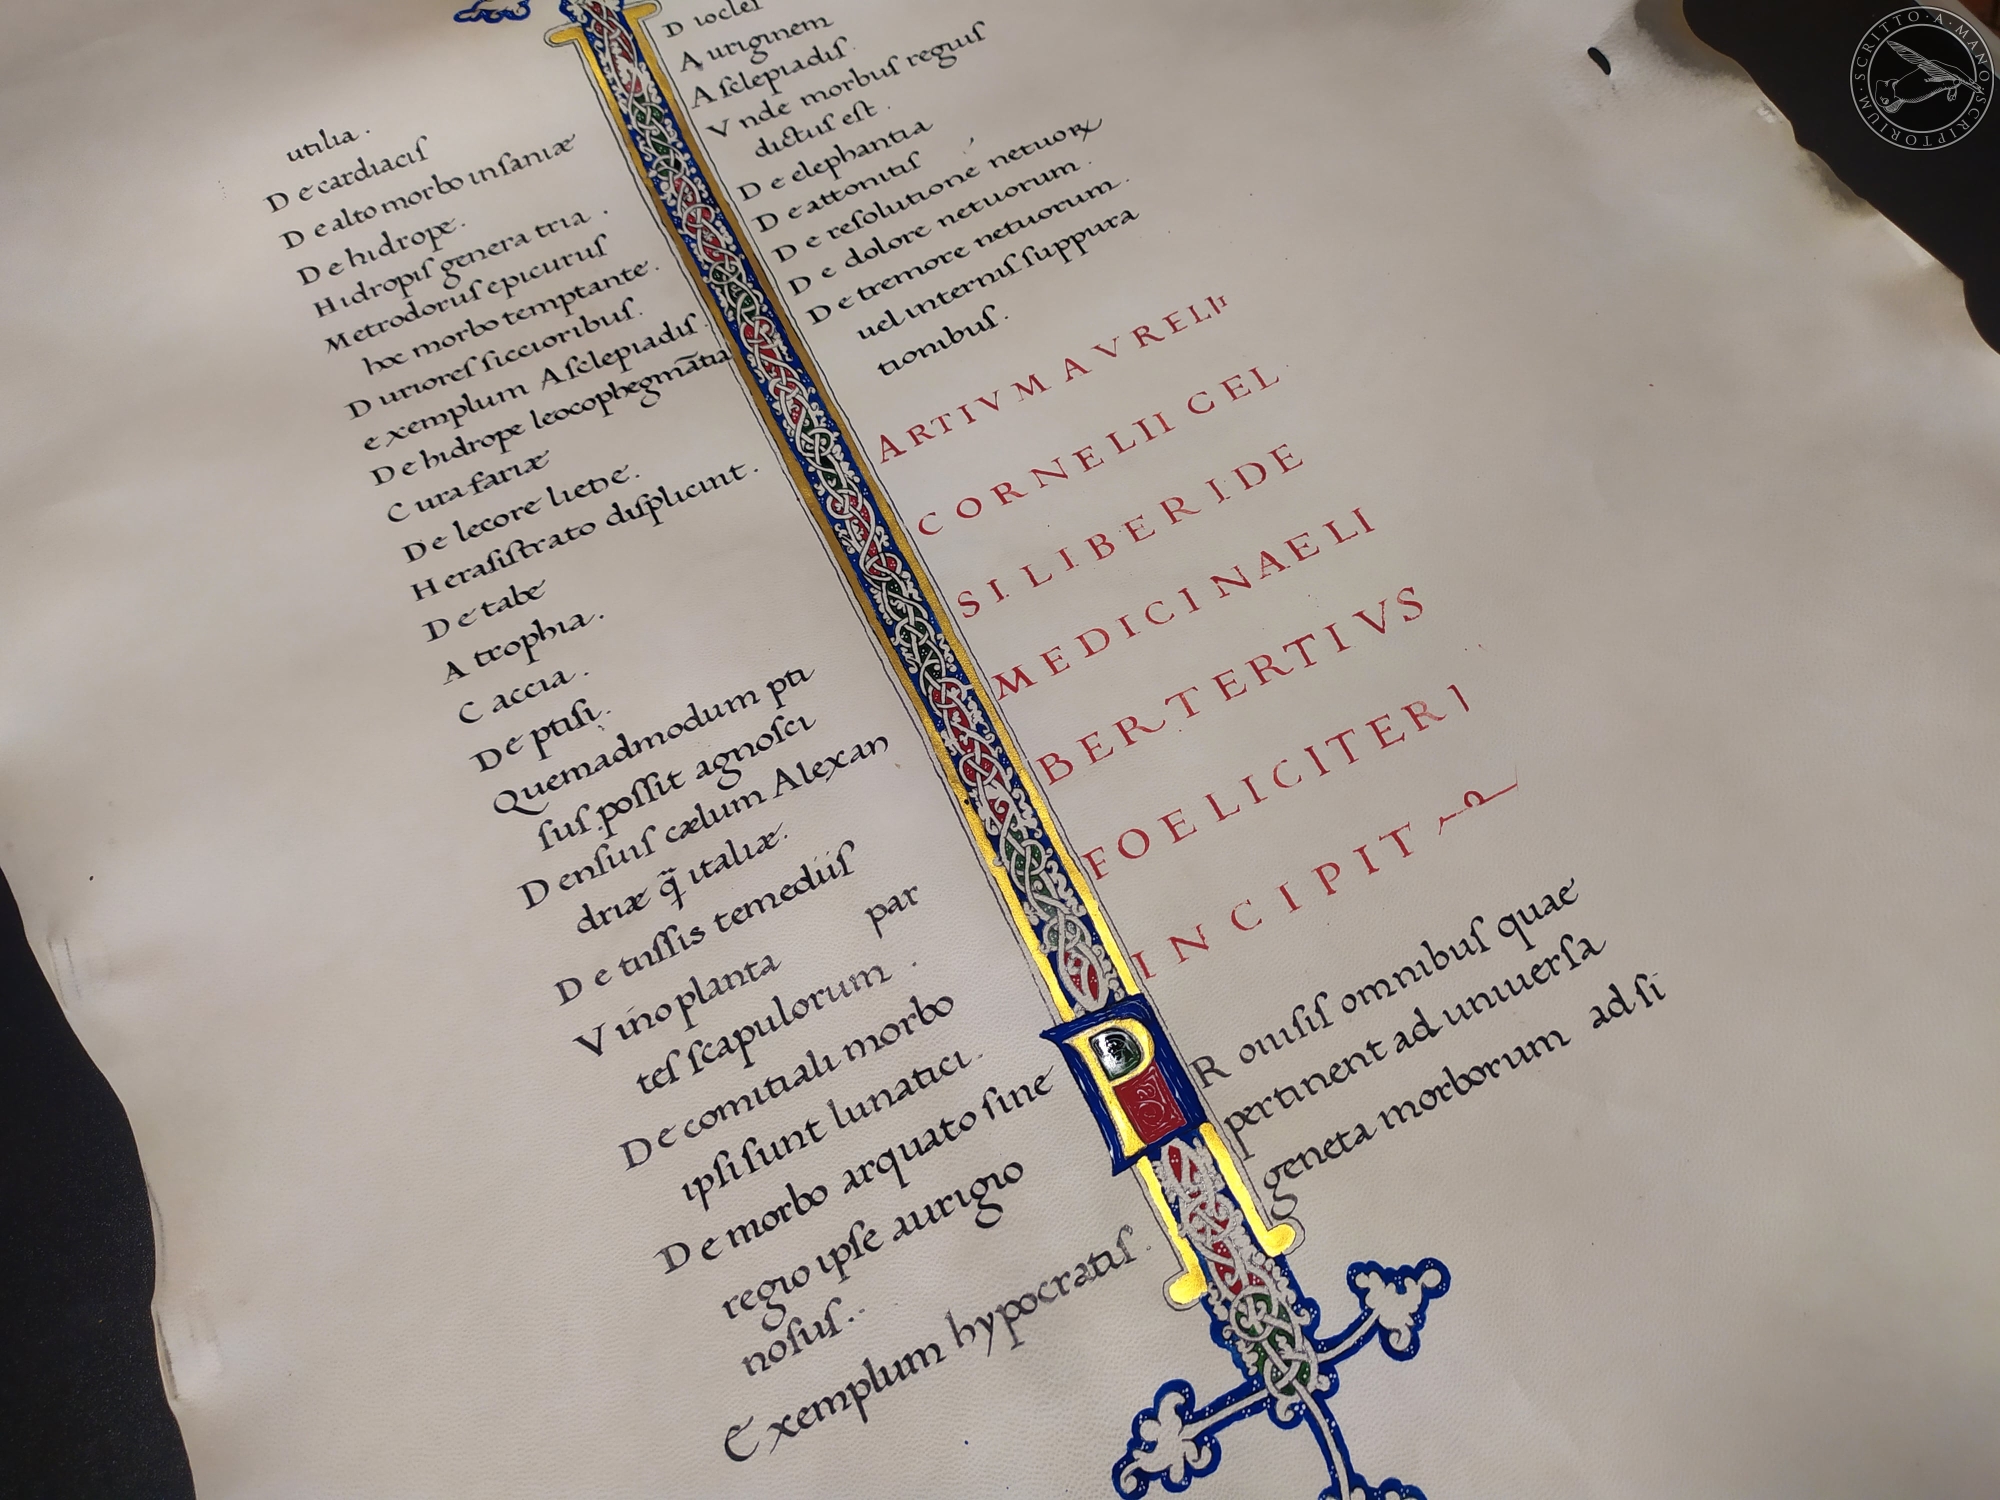 utilia.
De cardiaciſ
De alto morbo inſaniæ
De hidrope.
Hidropiſ genera tria.
Metrodoruſ epicuruſ
hoc morbo temptante.
Durioreſ ſiccioribuſ.
exemplum Aſclepiadiſ.
De hidrope leocophegmātia
Cura fariæ
De lecore
Heraſiſtrato diſplicint.
De tabe
Atrophia.
Caccia.
De ptiſi.
Quemadmodum pti
ſuſ poſſit agnoſci
Denſuiſ cælum Alexan
driæ q̃ italiæ.
De tuſſis temediiſ
Vino planta par
teſ ſcapulorum.
De comitiali morbo
ipſi ſunt lunatici.
De morbo arquato ſine
regio ipſe aurigio
noſuſ.
Exemplum hypocratiſ.
Diocleſ
Auriginem
Aſclepiadiſ.
Vnde morbuſ regiuſ
dictuſ eſt.
De elephantia
De attonitiſ
De reſolutione netuoꝝ
De dolore netuorum.
De tremore netuorum.
uel interniſ ſuppura
tionibuſ.
ARTIVM AVRELII
CORNELII CEL
SI LIBER IDE
MEDICINAE LI
BER TERTIVS
FOELICITER
INCIPIT
PRouiſiſ omnibuſ quae
pertinent ad uniuerſa
geneta morborum ad ſi
SCRITTO·A·MANO SCRIPTORIUM